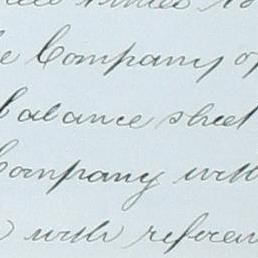 Company
balance sheet
Company with
with referen